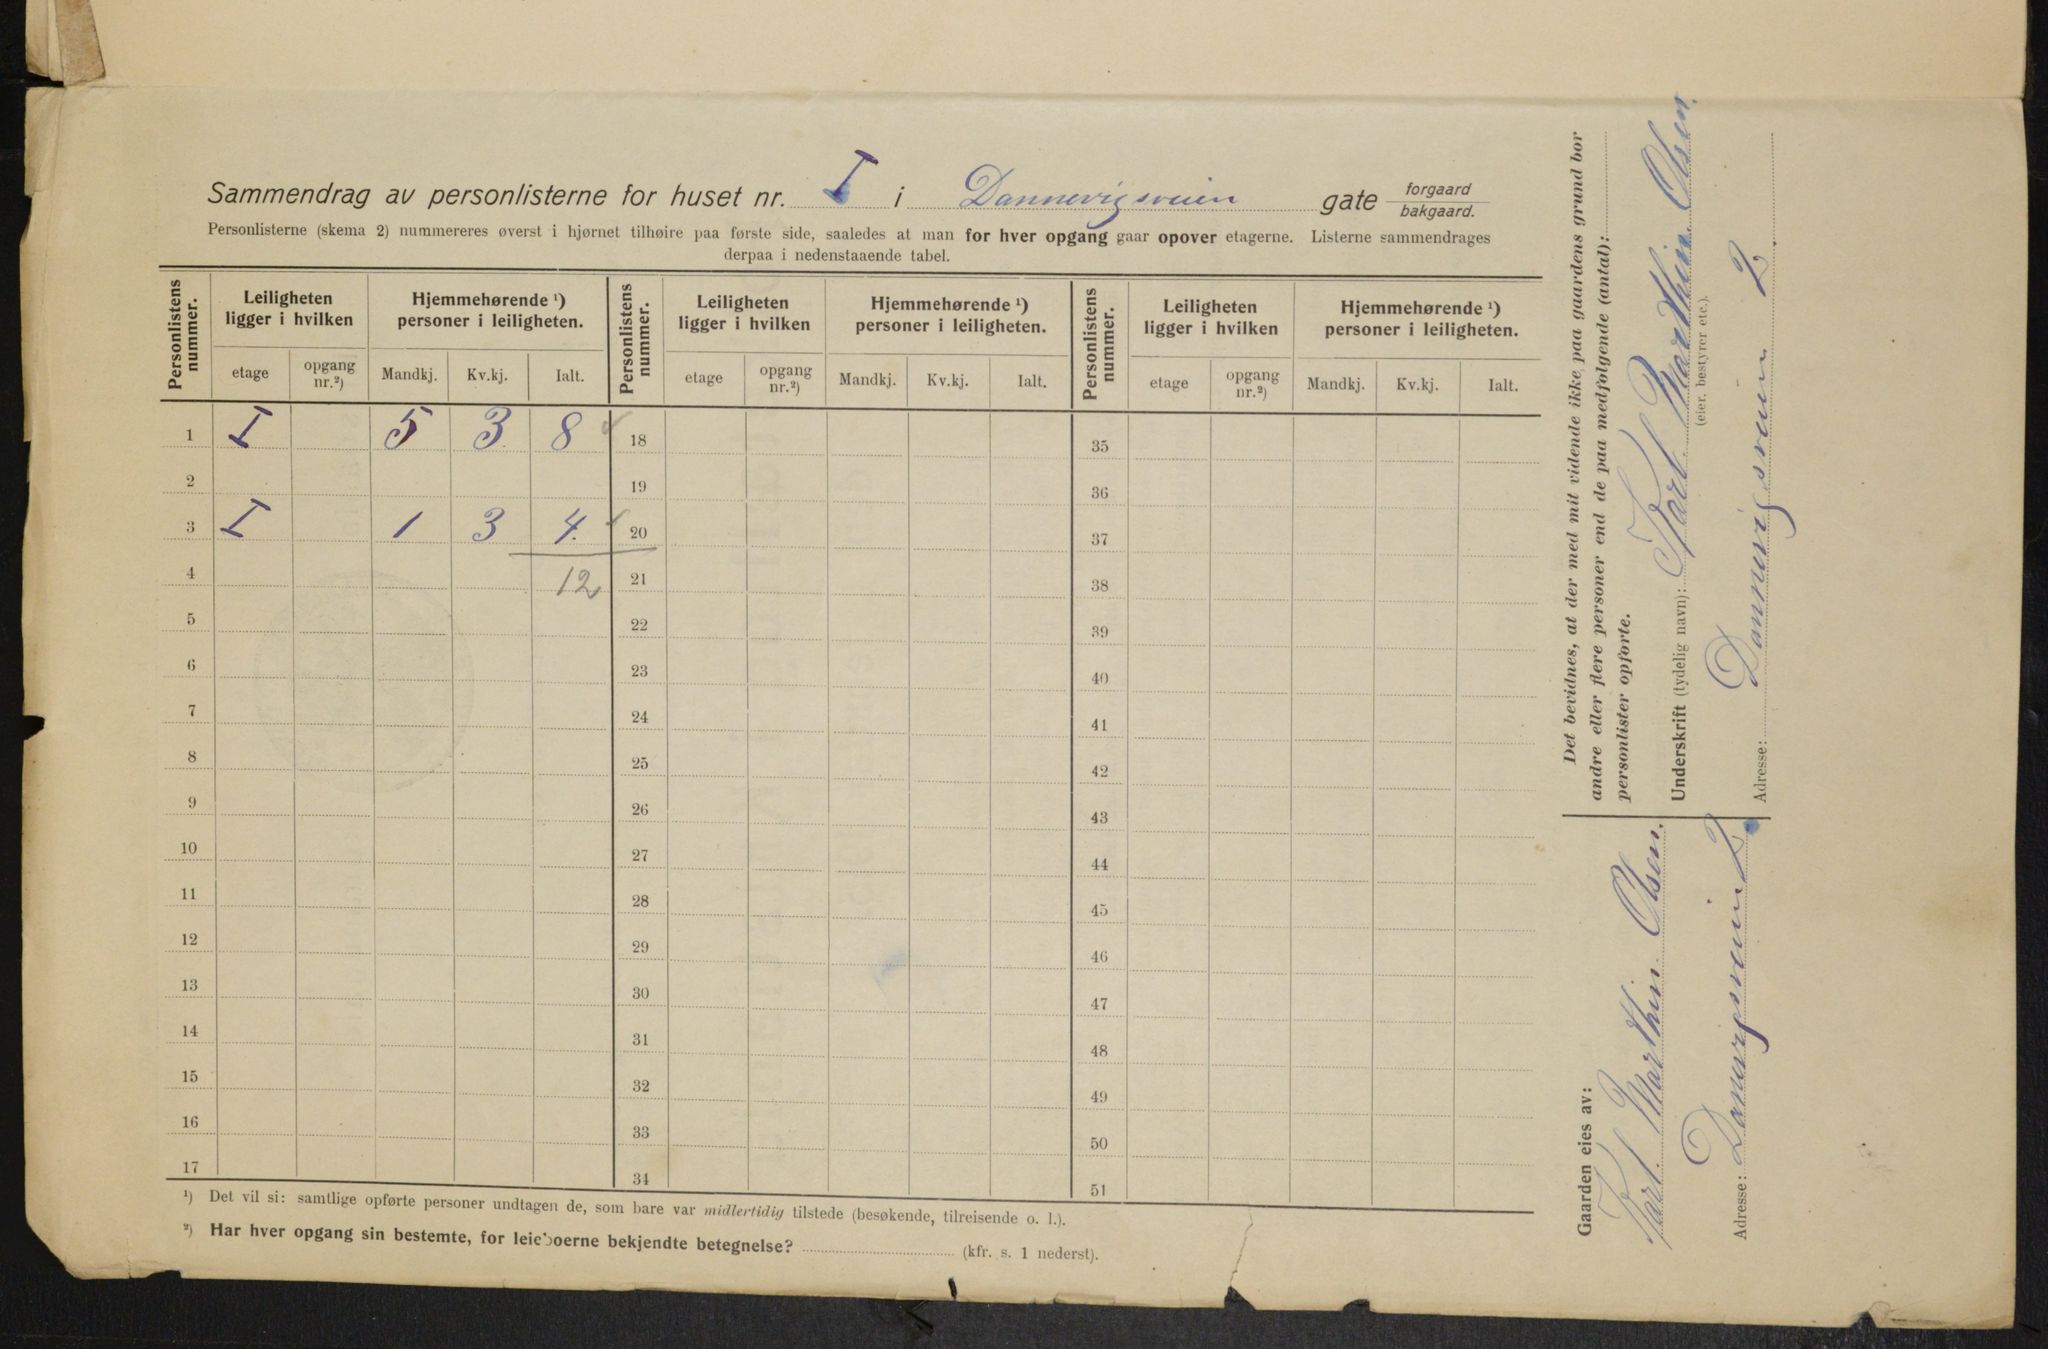 Sammendrag av personlisterne for huset nr. I i Dannevigsveien gate forgaard
bakgaard.
Personlisterne (skema 2) nummereres øverst i hjørnet tilhøire paa første side, saaledes at man for hver opgang gaar opover etagerne. Listerne sammendrages
derpaa i nedenstaaende tabel.
Personlistens nummer. Leiligheten ligger i hvilken Hjemmehørende ¹) personer i leiligheten. Personlistens nummer. Leiligheten ligger i hvilken Hjemmehørende ¹) personer i leiligheten. Personlistens nummer. Leiligheten ligger i hvilken Hjemmehørende ¹) personer i leiligheten.
etage opgang nr.²) Mandkj. Kv.kj. Ialt. etage opgang nr.²) Mandkj. Kv.kj. Ialt. etage opgang nr.²) Mandkj. Kv.kj. Ialt.
1 I 5 3 8 18 35
2 19 36
3 I 1 3 4 20 37
4 12 21 38
5 22 39
6 23 40
7 24 41
8 25 42
9 26 43
10 27 44
11 28 45
12 29 46
13 30 47
14 31 48
15 32 49
16 33 50
17 34 51
¹) Det vil si: samtlige opførte personer undtagen de, som bare var midlertidig tilstede (besøkende, tilreisende o. l.).
²) Har hver opgang sin bestemte, for leieboerne bekjendte betegnelse? (kfr. s. 1 nederst).
Gaarden eies av:
Karl Marthin Olsen.
Adresse: Dannevigsveien 2
Det bevidnes, at der med mit vidende ikke paa gaardens grund bor
andre eller flere personer end de paa medfølgende (antal):
personlister opførte.
Underskrift (tydelig navn): Karl Marthin Olsen.
(eier, bestyrer etc.).
Adresse: Dannevigsveien 2.